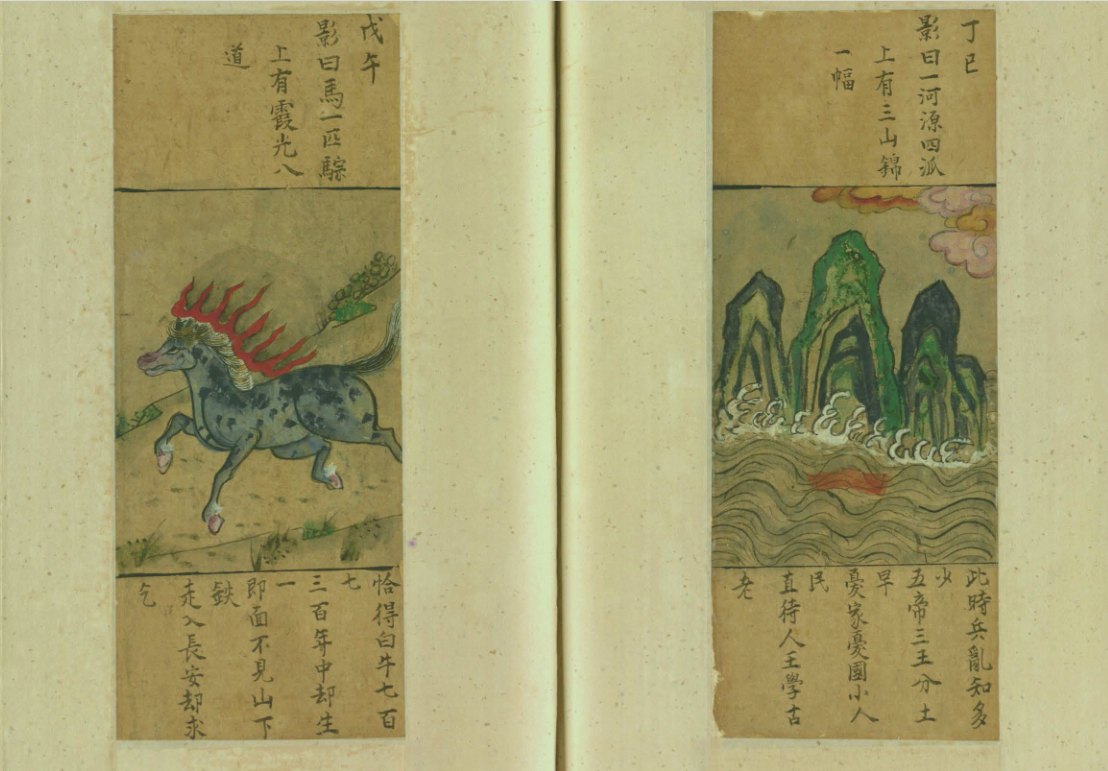 丁巳
影曰一河源四派
上有三山錦
一幅
此時兵亂知多
少
五帝三王分土
早
憂家憂國小人
民
直待人王學古
老
戊午
影曰馬一匹騌
上有霞光八
道
恰得白牛七百
七
三百年中却生
一
即面不見山下
鉄
走入長安却求
乞